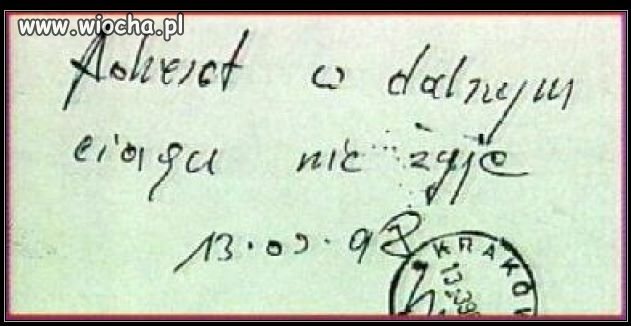 www.wiocha.pl
Adresat w dalszym
ciągu nie żyje
13.03.98
KRAKÓ